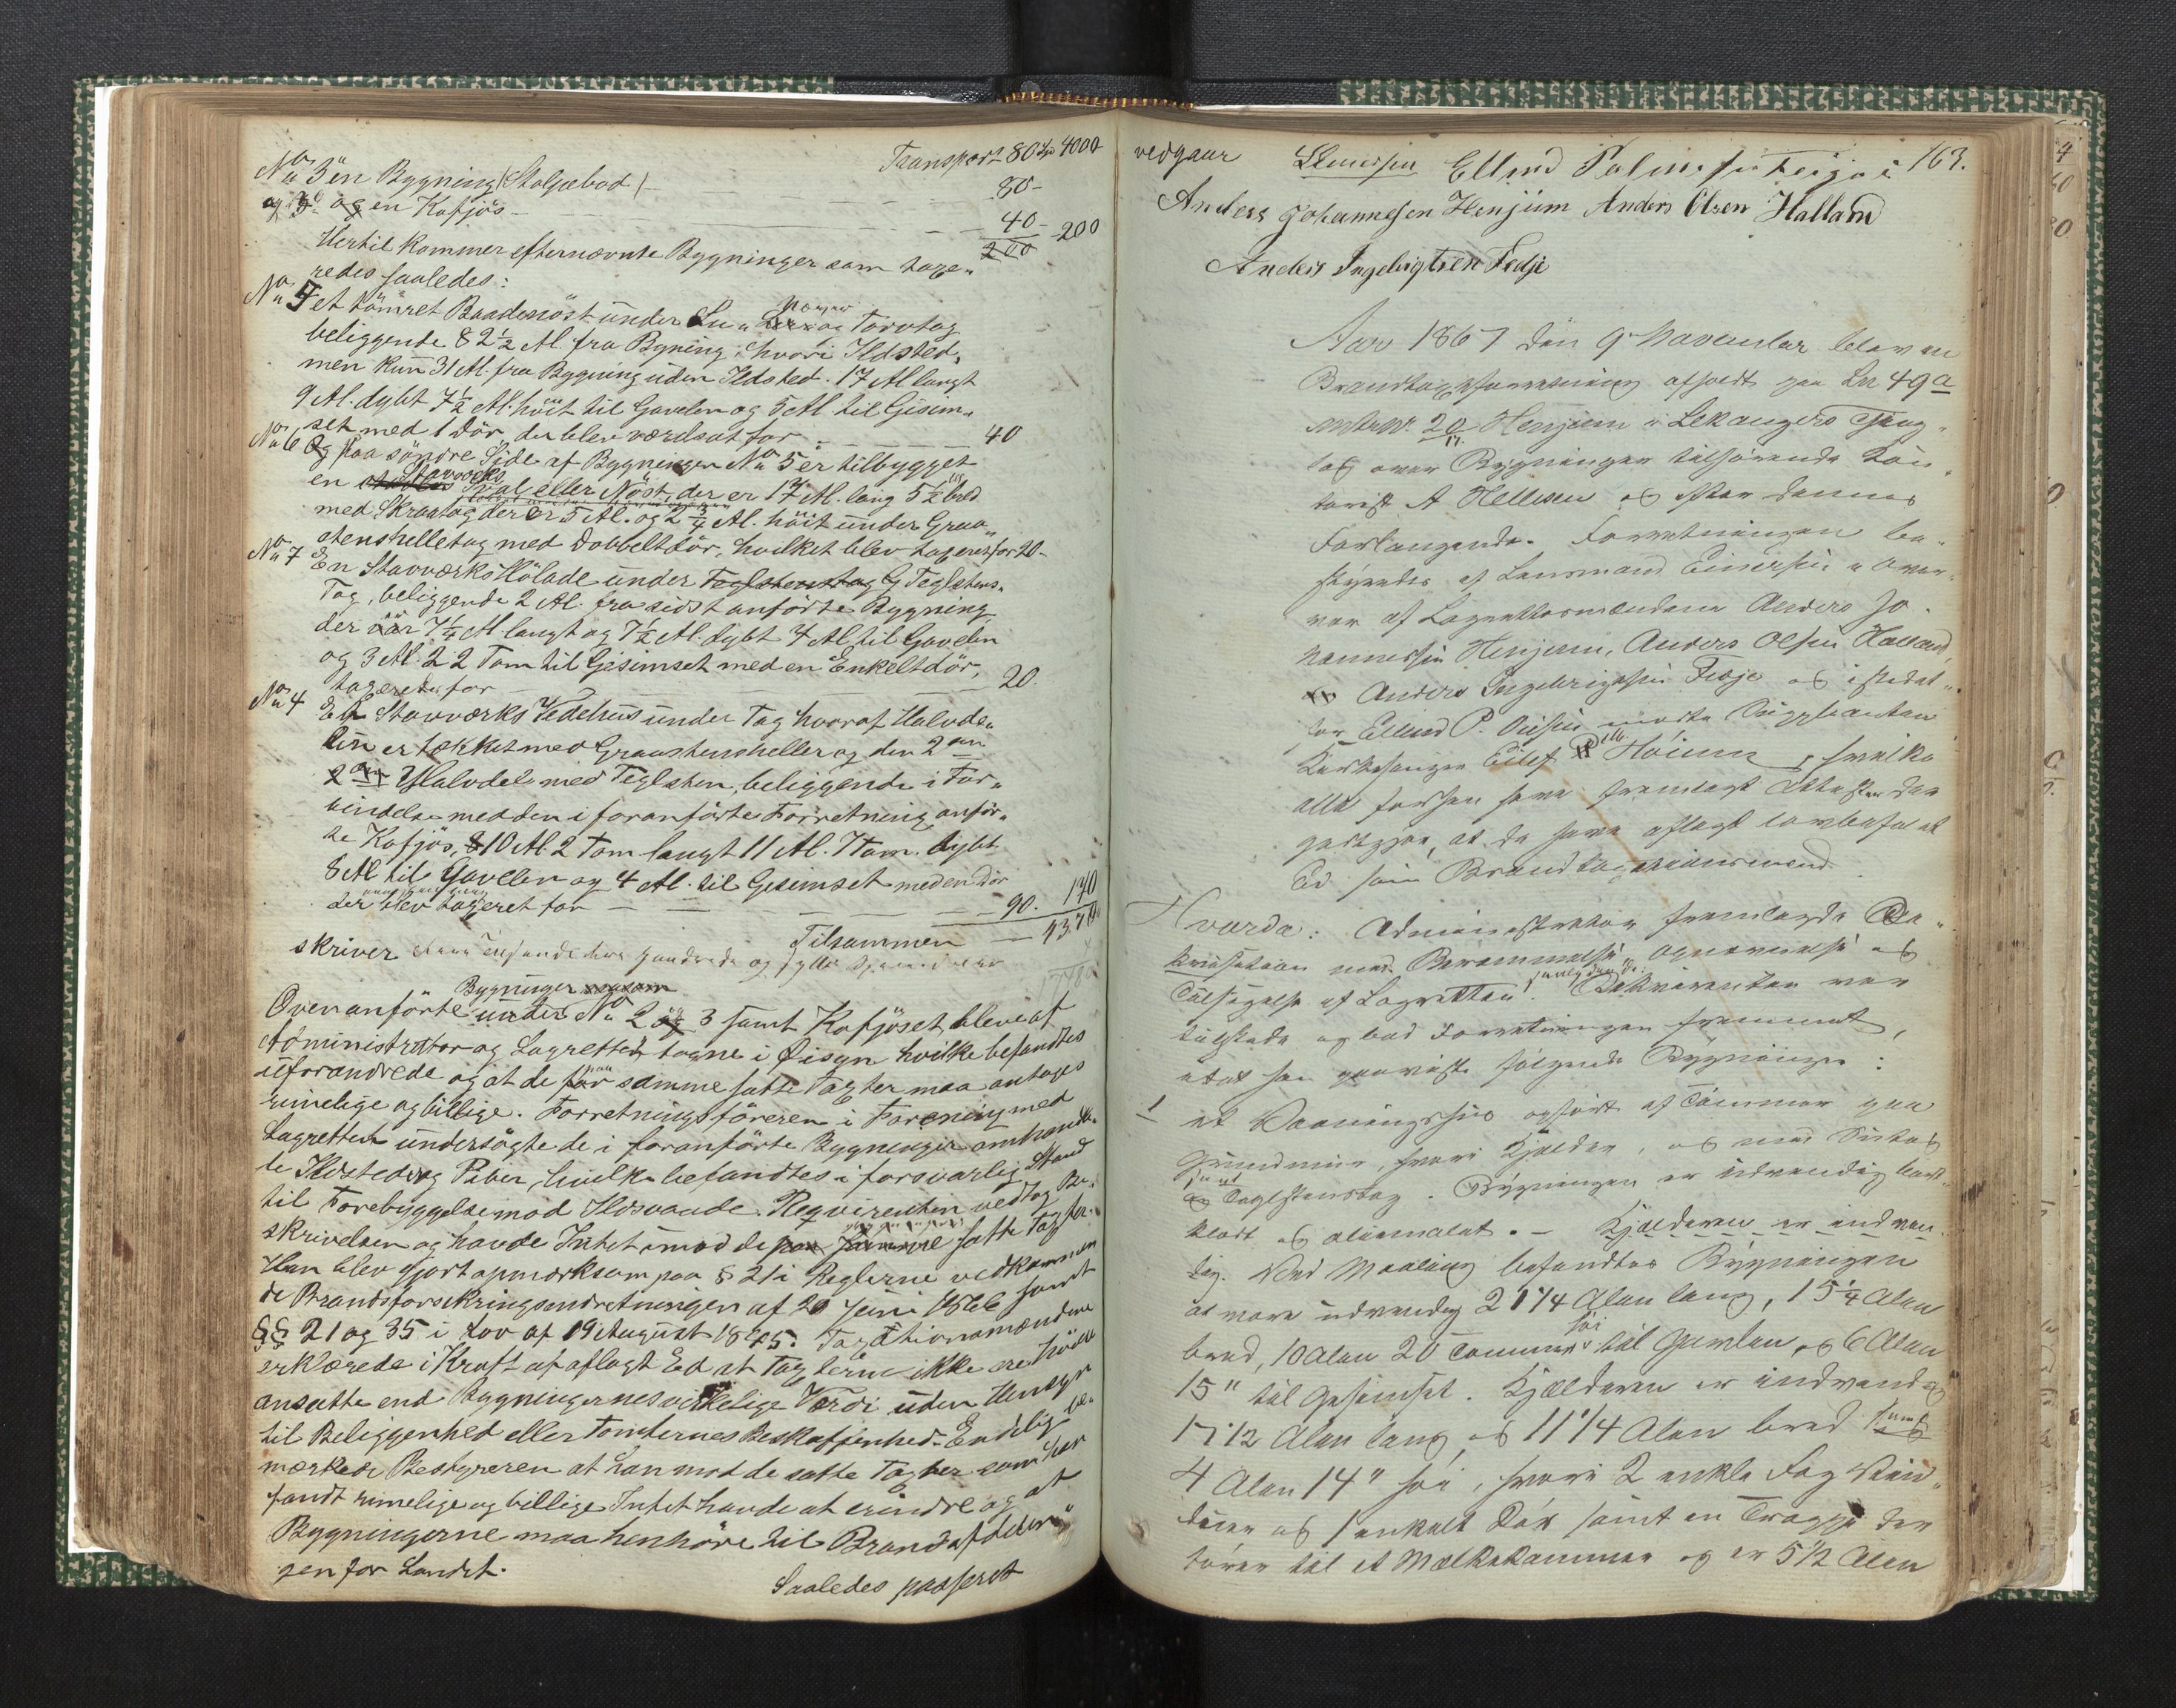 Transport 80 4000
No 3 en Bygning (Stolpebod) 80-
og en Kofjös 40- 200
Hertil kommer efternævnte Bygninger som taxe„
redes saaledes:
No 5 et tömret Baadenöst under Næver og Torvtag
beliggende 82½ Al. fra Bygning, hvori Ildsted,
men kun 31 Al. fra Bygning uden Ildsted. 17 Al langt
9 Al. dybt 7½ Al. höit til Gavelen og 5 Al til Gesim„
set med 1 Dör, der blev værdsat for 40
No 6 Paa söndre Side af Bygningen No 5 er tilbygget
en Stavværks Sval eller Nöst, der er 17 Al. lang 5½ bred
med Skraatag der er 5 Al. og 2¾ Al. höit under Graa„
stenshelletag med Dobbeltdör, hvilket blev taxeret for 20-
No 7 En Stavværks Hölade under Teglstens„
Tag, beliggende 2 Al. fra sidst anförte Bygning
der är 7¼ Al langt og 7½ Al. dybt 4 Al til Gavelen
og 3 Al. 22 Tom til Gesimset med en Enkeltdör,
taxeret for 20.
No 4 Et Stavværks Vedehus under Tag hvoraf Halvde„
len er tækket med Graastensheller og den 2den
Halvdel med Teglsten, beliggende i For„
bindelse med den i foranförte Forretning anför„
te Kofjös, 10 Al 2 Tom langt 11 Al. 7 Tom. dybt
8 Al til Gavelen og 4 Al. til Gesimset med en Dör
der blev taxeret for 90. 170
Tilsammen 4370
skriver fire tusinde tre hundrede og sytti Spesiedaler
Ovenanförte Bygninger under No 2 og 3 samt Kofjöset, bleve af
Administrator og Lagretten tagne i Öisyn hvilke befandtes
uforandrede og at de paa samme satte Taxter maa antages
rimelige og billige. Forretningsföreren i Forening med
Lagretten undersögte de i foranförte Bygninger omhandle„
de Ildsteder og Piber, hvilke befandtes i forsvarlig Stand
til Forebyggelse mod Ildsvaade. Reqvirenten vedtog Be„
skrivelsen og havde Intet imod de satte Taxter.
Han blev gjort opmærksom paa § 21 i Reglerne vedkommen
de Brandforsikringsindretningen af 20 Juni 1866 samt
§§ 21 og 35 i Lov af 19 August 1845. Taxationsmændene
erklærede i Kraft af aflagt Ed at Taxterne ikke ere höiere
ansatte end Bygningernes virkelige Værdi uden Hensyn
til Beliggenhed eller Tomternes Beskaffenhed. Endelig be„
mærkede Bestyreren at han mod de satte Taxter som han
fandt rimelige og billige Intet havde at erindre og at
Bygningerne maa henhöre til Brandafdelin„
gen for Landet.
Saaledes passeret
vedgaar Einersen Ellend 163.
Anders Johannesen Henjum Anders Olsen Halland
Anders Ingebrigtsen Fedje
Aar 1867 den 9 November blev en
Brandtaxtforretning afholdt paa Ln 49a
Henjum i Lekangers Thing„
lag over Bygninger tilhörende Kon„
torist A Hellesen og efter dennes
Forlangende. Forretningen be„
styredes af Lensmand Einersen i Over„
vær af Lagrettesmændene Anders Jo„
hannessen Henjum, Anders Olsen Halland,
Anders Ingebrigtsen Fedje og istedet„
for Ellend P. mödte Suppleanten
Kirkesanger Eilef Höium, hvilke
alle forhen have fremlagt Attester der
godtgjör, at de have aflagt lovbefalet
Ed som Brandtaxationsmænd.
Hvorda: Administrator fremlagde Re„
kvisition med Berammelse, Opnævnelse og
Tilsigelse af Lagretten. Rekvirenten var
tilstede og bad Forretningen fremmet,
idet han paaviste fölgende Bygninger:
1 et Vaaningshus opfört af Tömmer paa
Grundmur, hvori Kjelder, og med
Teglstenstag. Bygningen er udvendig bord„
klædt og oliemalet. – Kjælderen er indven„
dig. Ved Maaling befandtes Bygningen
at være udvendig 21¼ Alen lang, 15¼ Alen
bred, 10 Alen 20 Tommer höi til Gavlen, og 6 Alen
15" til Gesimset. Kjælderen er indvendig
17½ Alen lang og 11¼ Alen bred samt
4 Alen 14" höi, hvori 2 enkle Fag Vin„
duer og 1 enkelt Dör samt en Trappe der
förer til et Melkekammer og er 5½ Alen